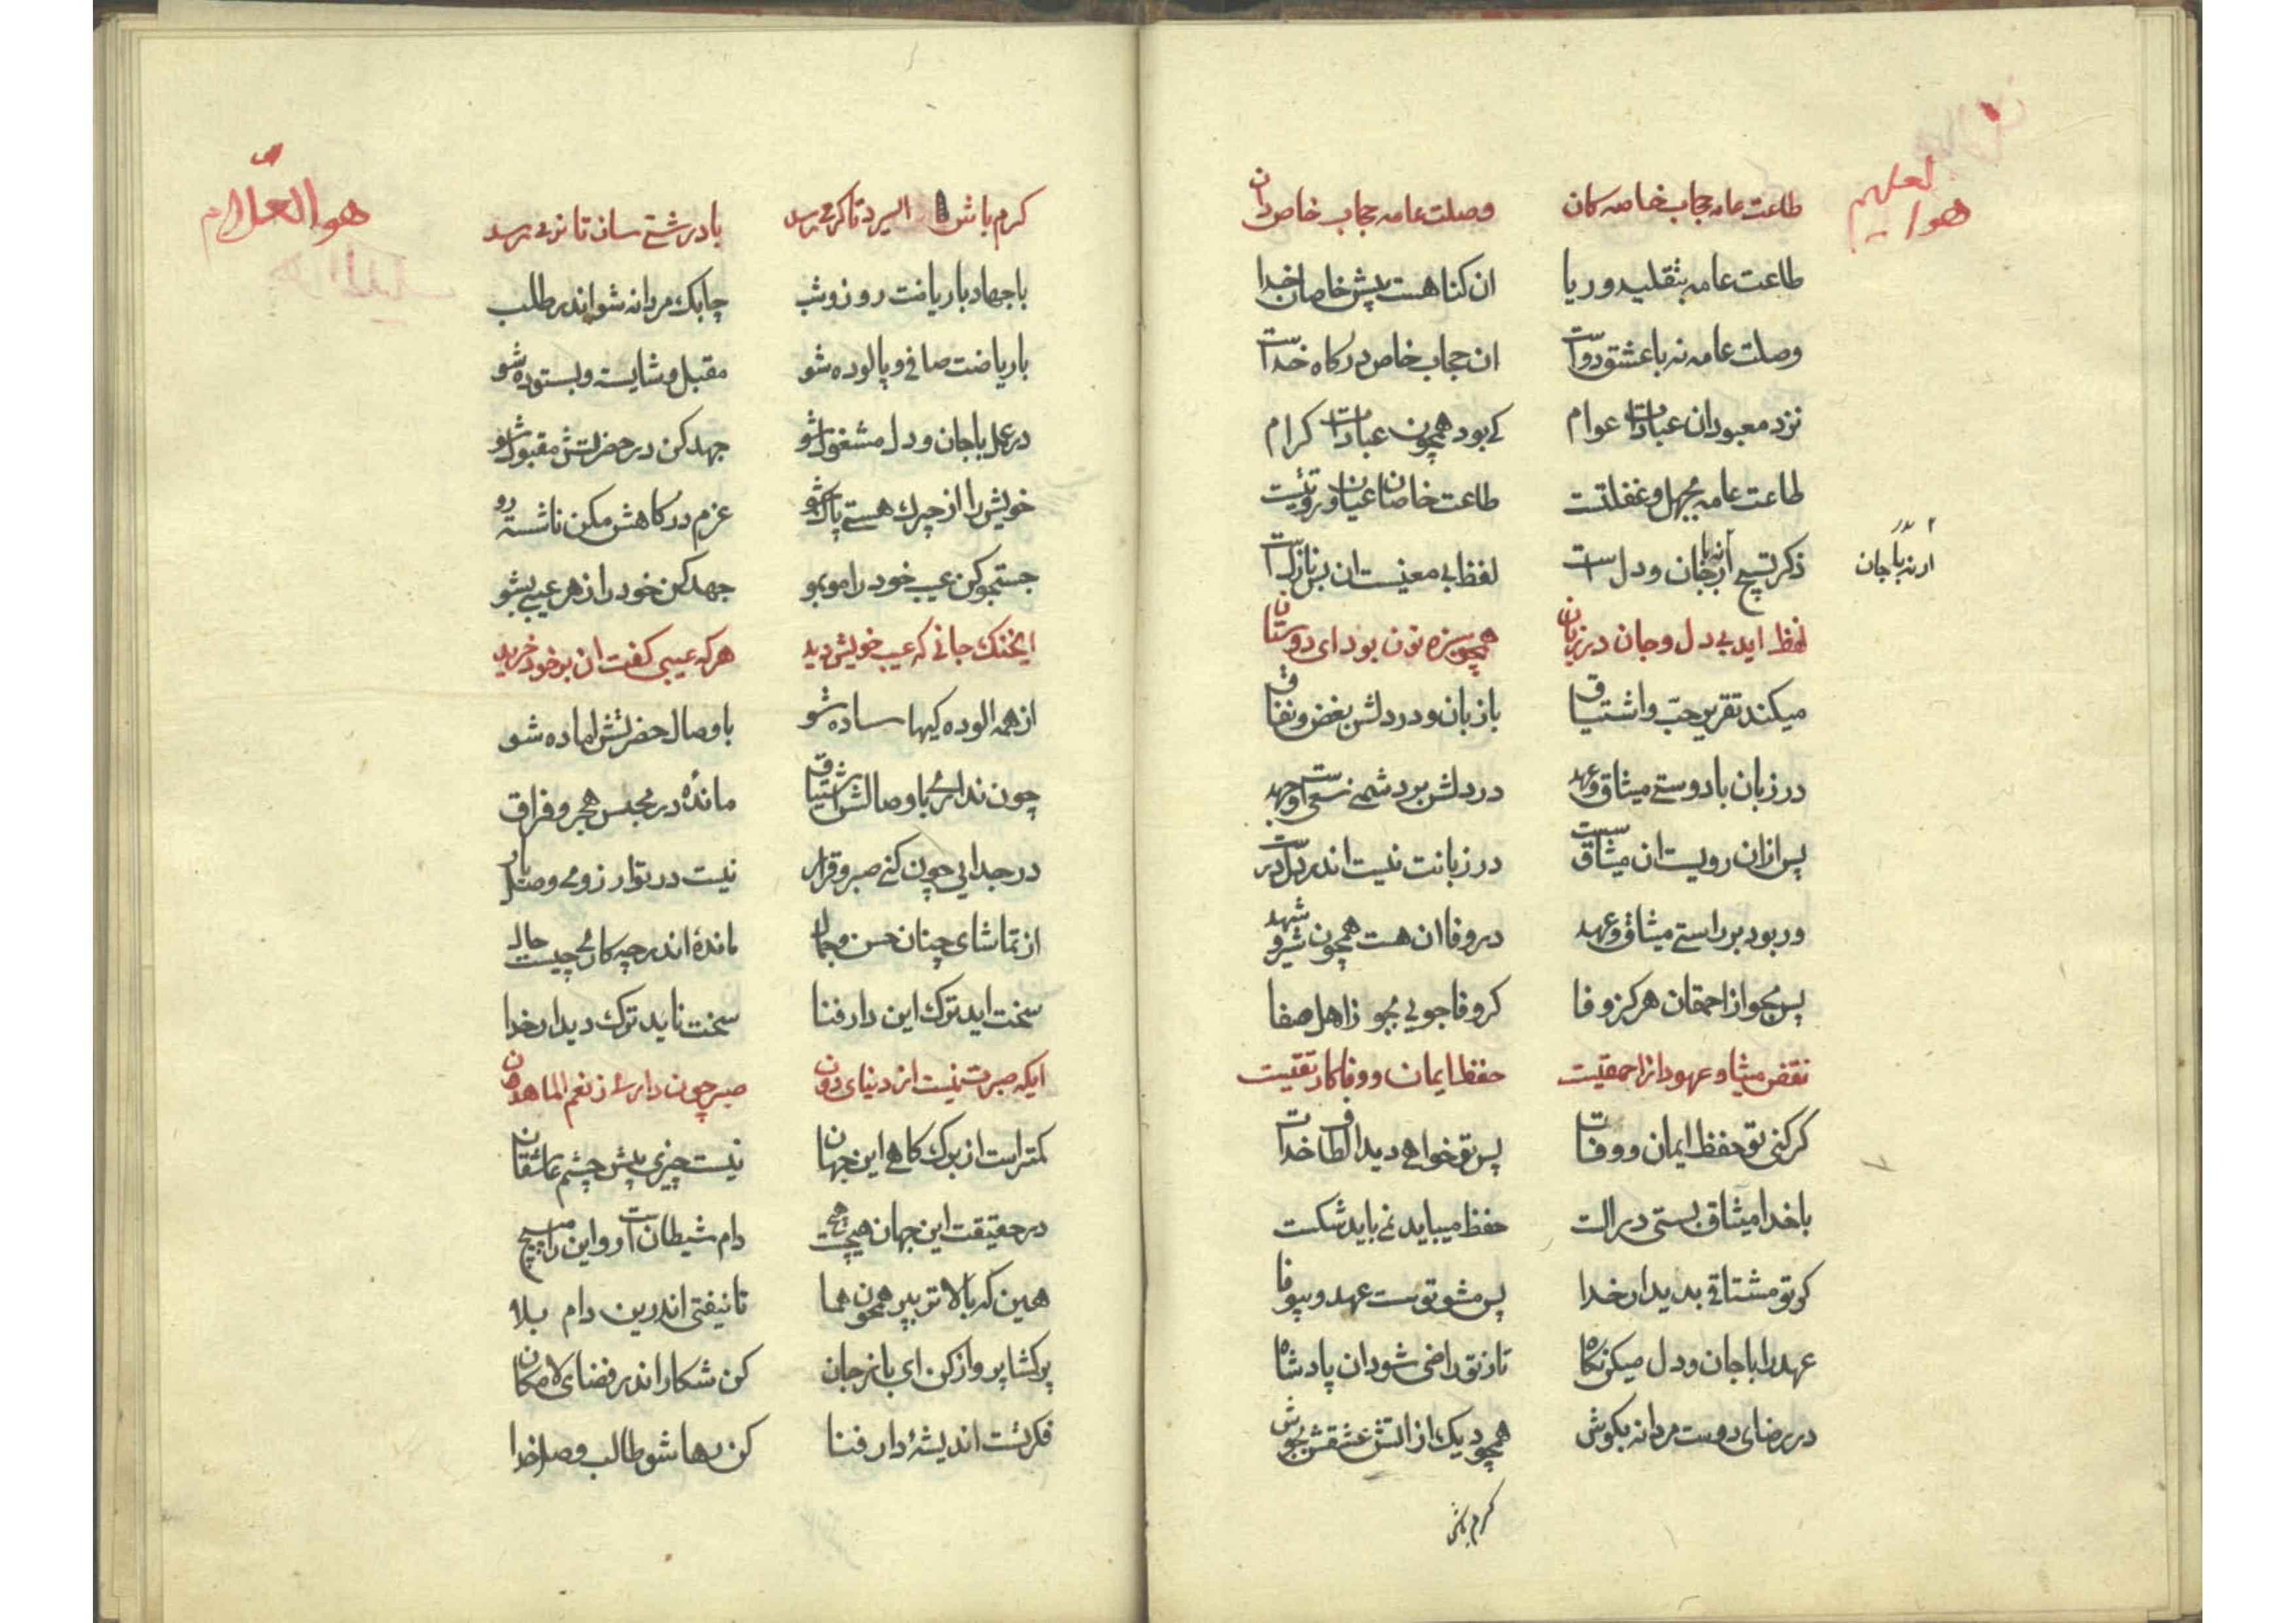 هوا لعلیم
طاعت عامه حجاب خاصه کان وصلت عامه حجاب خاص دان
طاعت عامه بتقلید و ریا ان کناهست پیش خاصان خدا
وصلت عامه نه با عشق دوست ان حجاب خاص درکاه خداست
نزد معبودان عبادات عوام کی بود همچون عبادات کرام
طاعت عامه بجهل و غفلتست طاعت خاصان عیان و رؤیتست
ذکر تسبیح ار نه با جان و دلست لفظ بی معنیست ان بس نازلست
ار نه با جان
لفظ اید بی دل و جان در زبان همچو سبزه تون بود ای دوستان
میکند تقریر حبّ و اشتیاق با زبان و در دلش بغض و نفاق
در زبان با دوستی میثاق و عهد در دلش بر دشمنی سعی و جهد
پس ازان رویست ان میثاق سست در زبانت نیست اندر دل درست
ور بود بر راستی میثاق و عهد در وفا ان هست همچون شیر و شهد
پس مجو از احمقان هرکز وفا کر وفا جویی بجو ز اهل صفا
نقض میثاق و عهود از احمقیست حفظ ایمان و وفا کار تقیست
کر کنی تو حفظ ایمان و وفات پس تو خواهی دید الطاف خدات
با خدا میثاق بستی در الست حفظ میباید نمی باید شکست
کر تو مشتاقی بدیدار خدا پس مشو تو سست عهد و بیوفا
عهد را با جان و دل میکن نکاه تا ز تو راضی شود ان پادشاه
در رضای دوست مردانه بکوش همچو دیک از اتش عشقش بجوش
کرم باش
هو العلّام
کرم باش السرد تا کرمی رسد با درشتی سان تا نرمی رسد
با جهاد با ریاضت روز و شب چابک مردانه شو اندر طلب
با ریاضت صافی و پالوده شو مقبل و شایسته و بستوده شو
در عمل با جان و دل مشغول شو جهد کن در حضرتش مقبول شو
خویش را از چرک هستی پاک شو عزم درکاهش مکن ناشسته رو
جستجو کن عیب خود را مو بمو جهد کن خود را ز هر عیبی بشو
ایخنک جانی که عیب خویش دید هر که عیبی کفت ان بر خود خرید
از همه الوده کیها ساده شو با وصال حضرتش اماده شو
چون نداری با وصالش اشتیاق ماندهٔ در مجبس هجر و فراق
در جدایی چون کنی صبر و قرار نیست در تو ارزومی وصل یار
از تماشای چنان حسن و جمال ماندهٔ اندر چه کاری چیست حال
سخت اید ترک این دار فنا سخت ناید ترک دیدار خدا
ایکه صبرت نیست از دنیای دون صبر چون داری ز نعم الماهدون
کمتراست از برک کاهی این جهان نیست چیزی پیش چشم عاشقان
در حقیقت این جهان هیچست هیچ دام شیطانست او و این را مپیچ
همین که بالاتر بپر همچون هما تا نیفتی اندرین دام بلا
پر کشا پرواز کن ای باز جان کن شکار اندر فضای لامکان
فکرتست اندیشهٔ دار فنا کن رها شو طالب وصل خدا